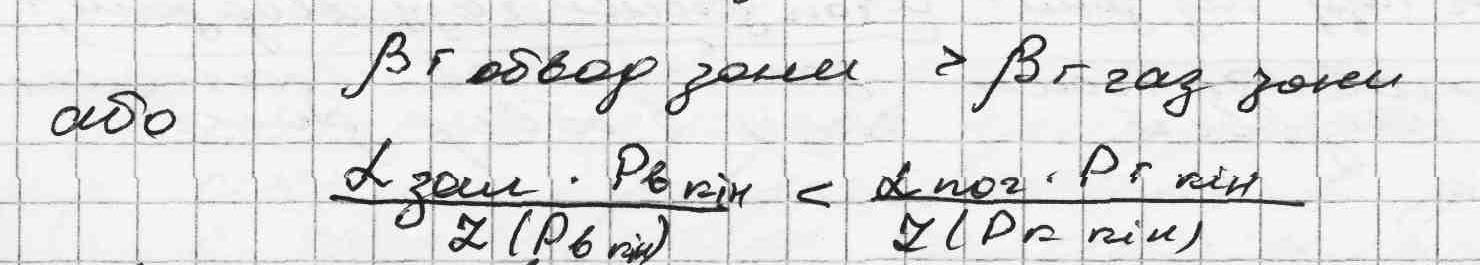 βг обвод зони > βг газ зони
або
αзал · Pв кін / Z(Pв кін) < αпоч · Pг кін / Z(Pк кін)